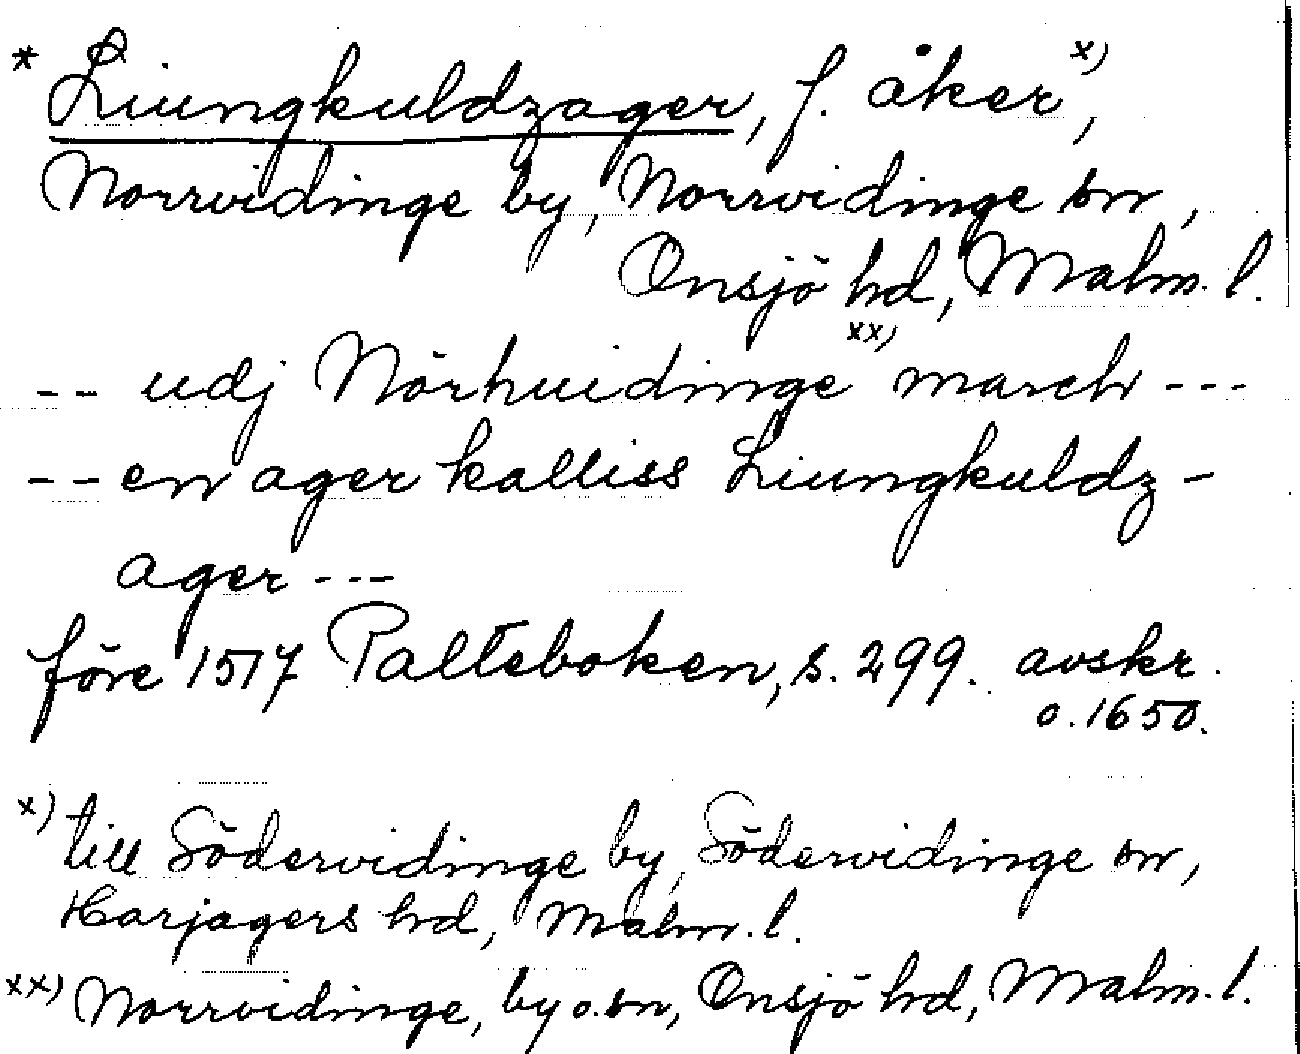 * Liungkuldzager, f. åker x),
Norrvidinge by, Norrvidinge sn,
Onsjö hd, Malm. l.
-- udj Nörhuidinge xx) march ---
-- en ager kalliss Liungkuldz-
ager ---
före 1517 Palteboken, s. 299. avskr.
o. 1650.
x) till Södervidinge by, Södervidinge sn,
Harjagers hd, Malm. l.
xx) Norrvidinge, by o. sn, Onsjö hd, Malm. l.